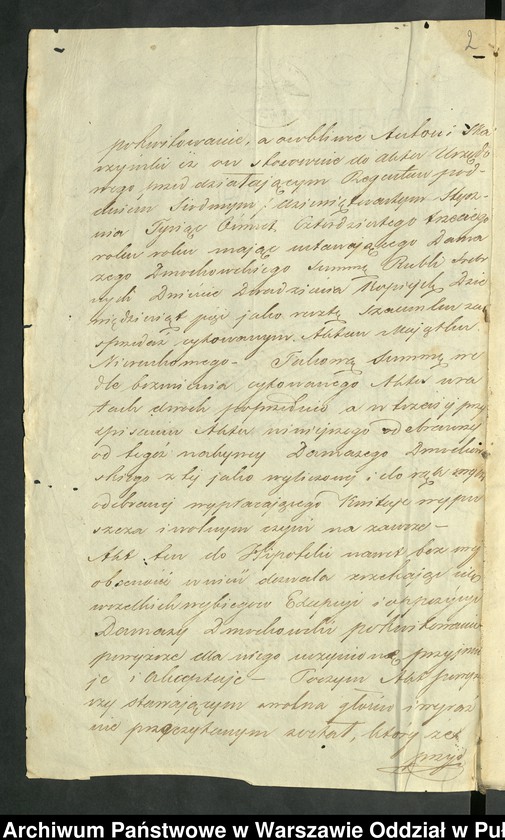 2
pokwitowanie, a osobliwie Antoni Ska
rzyński iż on stosownie do Aktu Urzędo
wnego przed działającym Regentem pod
dniem Siódmym i dziewiętnastym Stycz
nia Tysiąc Ośmset Czterdziestego trzeciego
roku roku mając ustawającego Dama
zego Dmochowskiego Summę Rubli Sreb
rnych Dwieście Dwadzieścia Kopiejek Dzie
więdziesiąt pięć jako resztę Szacunku za
sprzedaż cytowanym Aktem Majątku
Nieruchomego – Takową Summę we
dle brzmienia cytowanego Aktu w ra
tach dwóch poprzednio a w trzeciej przy
spisaniu Aktu niniejszego odebrawszy
od tegoż nabywcy Damazego Dmochow
skiego z tej jako wyliczonej i do rąk swych
odebranej wypłacającego kwituje wypu
szcza i wolnym czyni na zawsze –
Akt ten do Hipoteki nawet bez swej
obecności wnieść dozwala zrzekając się
wszelkich wybiegów Excepcji i oppozycji
Damazy Dmochowski pokwitowanie
powyższe dla niego uczynione przyjmu
je i Akceptuje – Poczym Akt powyż
szy stawającym wolno głośno i wyraź
nie przeczytanym został, który zez
przyo
Archiwum Państwowe w Warszawie Oddział w Puł